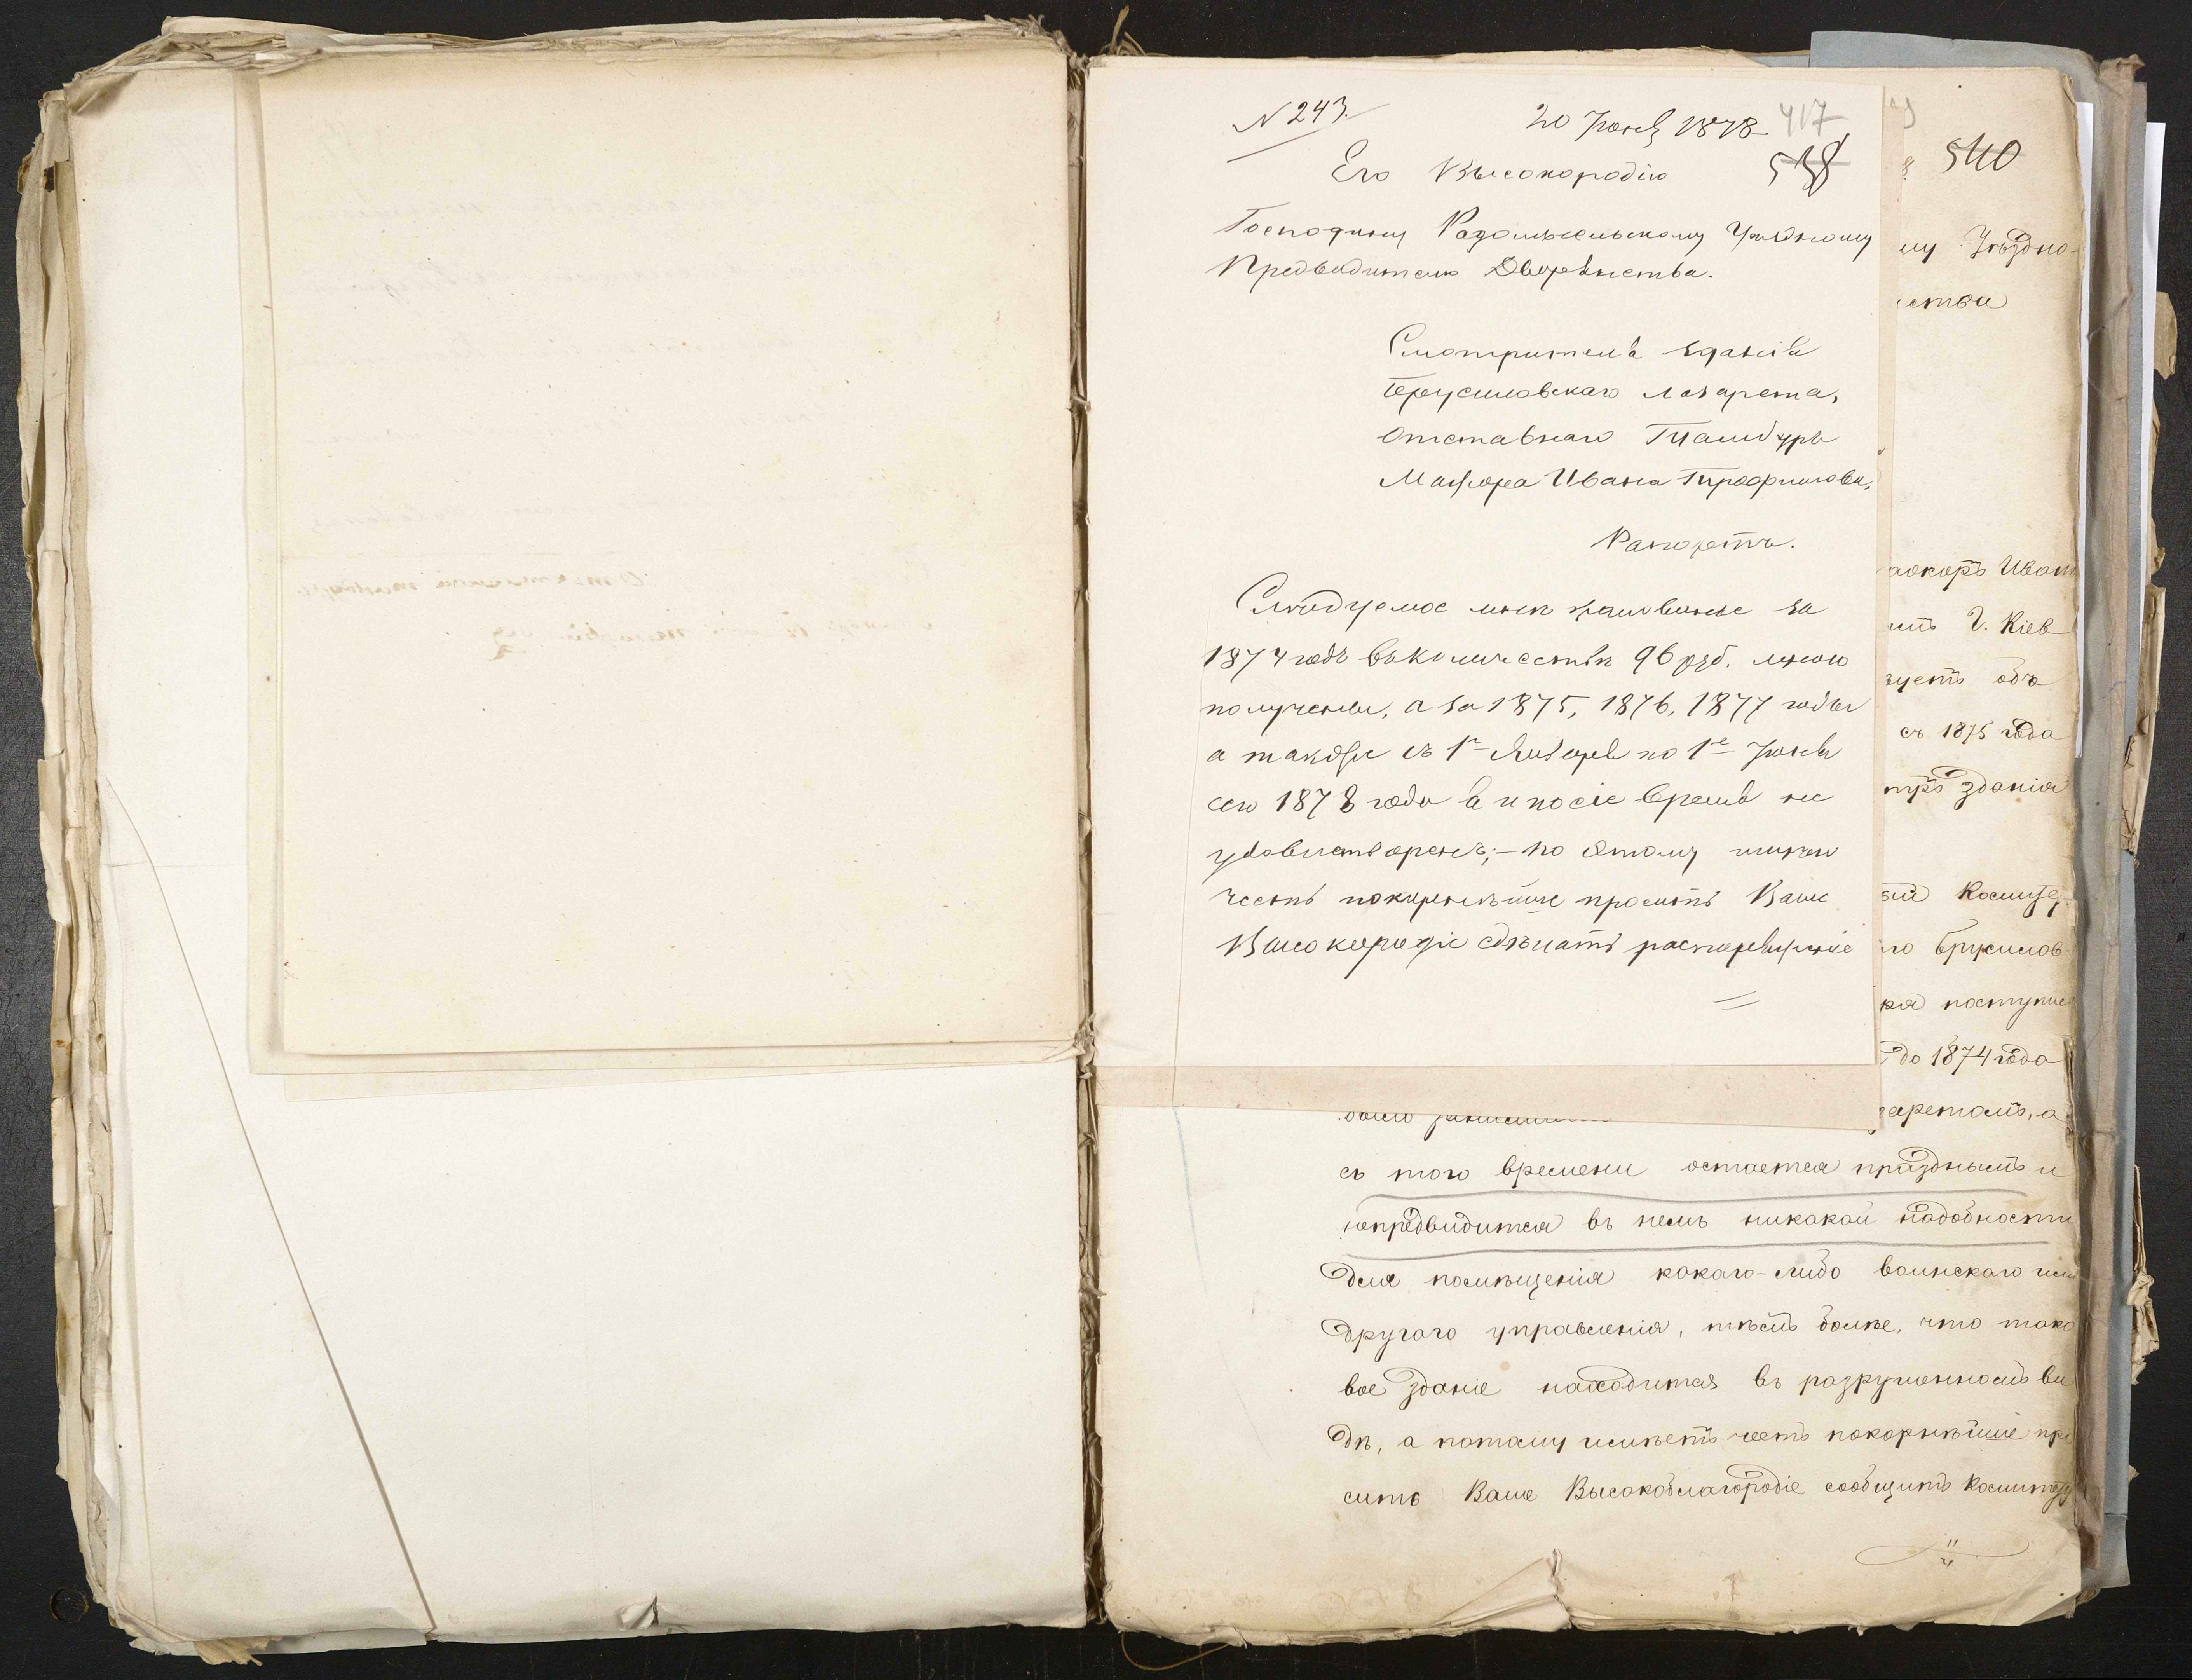 N 243.
20 Іюня 1878
417
538
Его Высокородію
Господину Радомысльскому Уѣздному
Предводителю Дворянства.
Смотрителя зданія
Брусиловскаго лазарета,
Отставнаго Тамбуръ
Мажора Ивана Трофимова,
Рапортъ.
Слѣдуемое мнѣ жалованье за
1874 годъ въ количествѣ 96 руб. мною
получены, а за 1875, 1876, 1877 годы
а также съ 1го Января по 1е Іюня
сего 1878 года я и посіе время не
удовлетворенъ; – по этому имѣю
честь покорнѣйше просить Ваше
Высокородіе сдѣлать распоряженіе
540
му Уѣздно-
ства
Иван
г. Кіев
объ
съ 1875 года
зданія
Комите
Брусилов-
поступис
до 1874 года
было
заретомъ, а
съ того времени остается празднымъ и
непредвидится въ немъ никакой надобности
для помѣщенія какаго-либо воинскаго или
другаго управленія, тѣмъ болѣе, что тако
вое зданіе находится въ разрушенномъ ви
дѣ, а потому имѣетъ честь покорнѣйше про
сить Ваше Высокоблагородіе сообщить Комитету